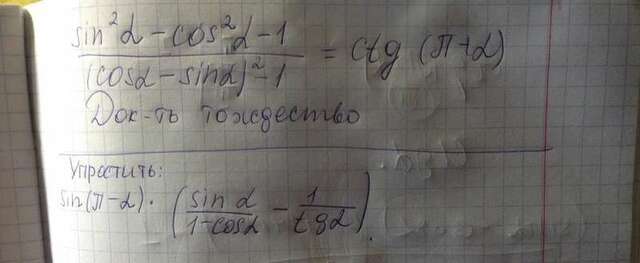 (sin²α - cos²α - 1)/((cosα - sinα)² - 1) = ctg (π+α)
Док-ть тождество
Упростить:
sin(π-α) · (sin α/(1-cosα) - 1/tgα).